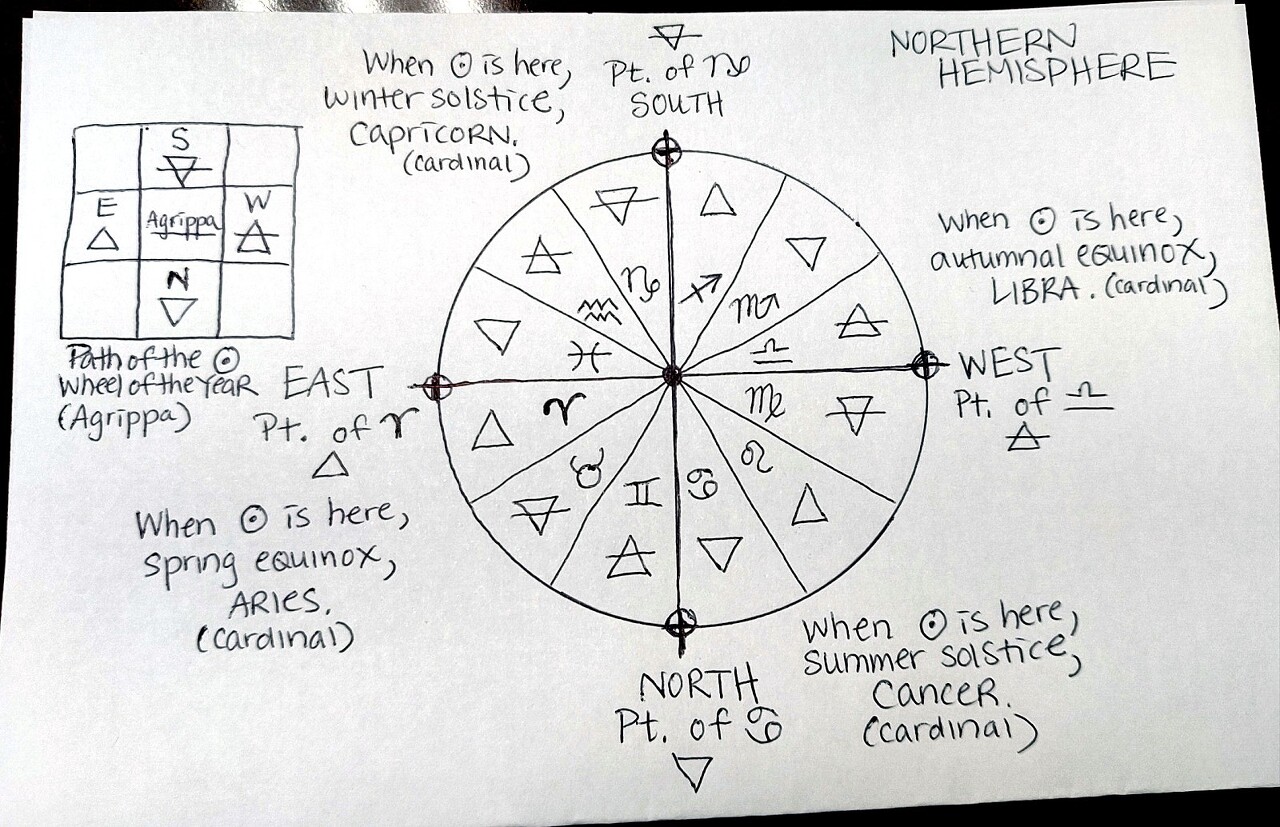 NORTHERN
HEMISPHERE
When ☉ is here,
winter solstice,
CAPRICORN.
(cardinal)
🜃
Pt. of ♑
SOUTH
S
🜃
E
🜂
Agrippa
W
🜁
N
🜄
Path of the ☉
Wheel of the Year
(Agrippa)
When ☉ is here,
autumnal equinox,
LIBRA. (cardinal)
EAST
Pt. of ♈
🜂
WEST
Pt. of ♎
🜁
When ☉ is here,
spring equinox,
ARIES.
(cardinal)
🜃 ♑
🜂 ♐
🜄 ♏
🜁 ♎
🜃 ♍
🜂 ♌
🜄 ♋
🜁 ♊
🜃 ♉
🜂 ♈
🜄 ♓
🜁 ♒
When ☉ is here,
summer solstice,
CANCER.
(cardinal)
NORTH
Pt. of ♋
🜄